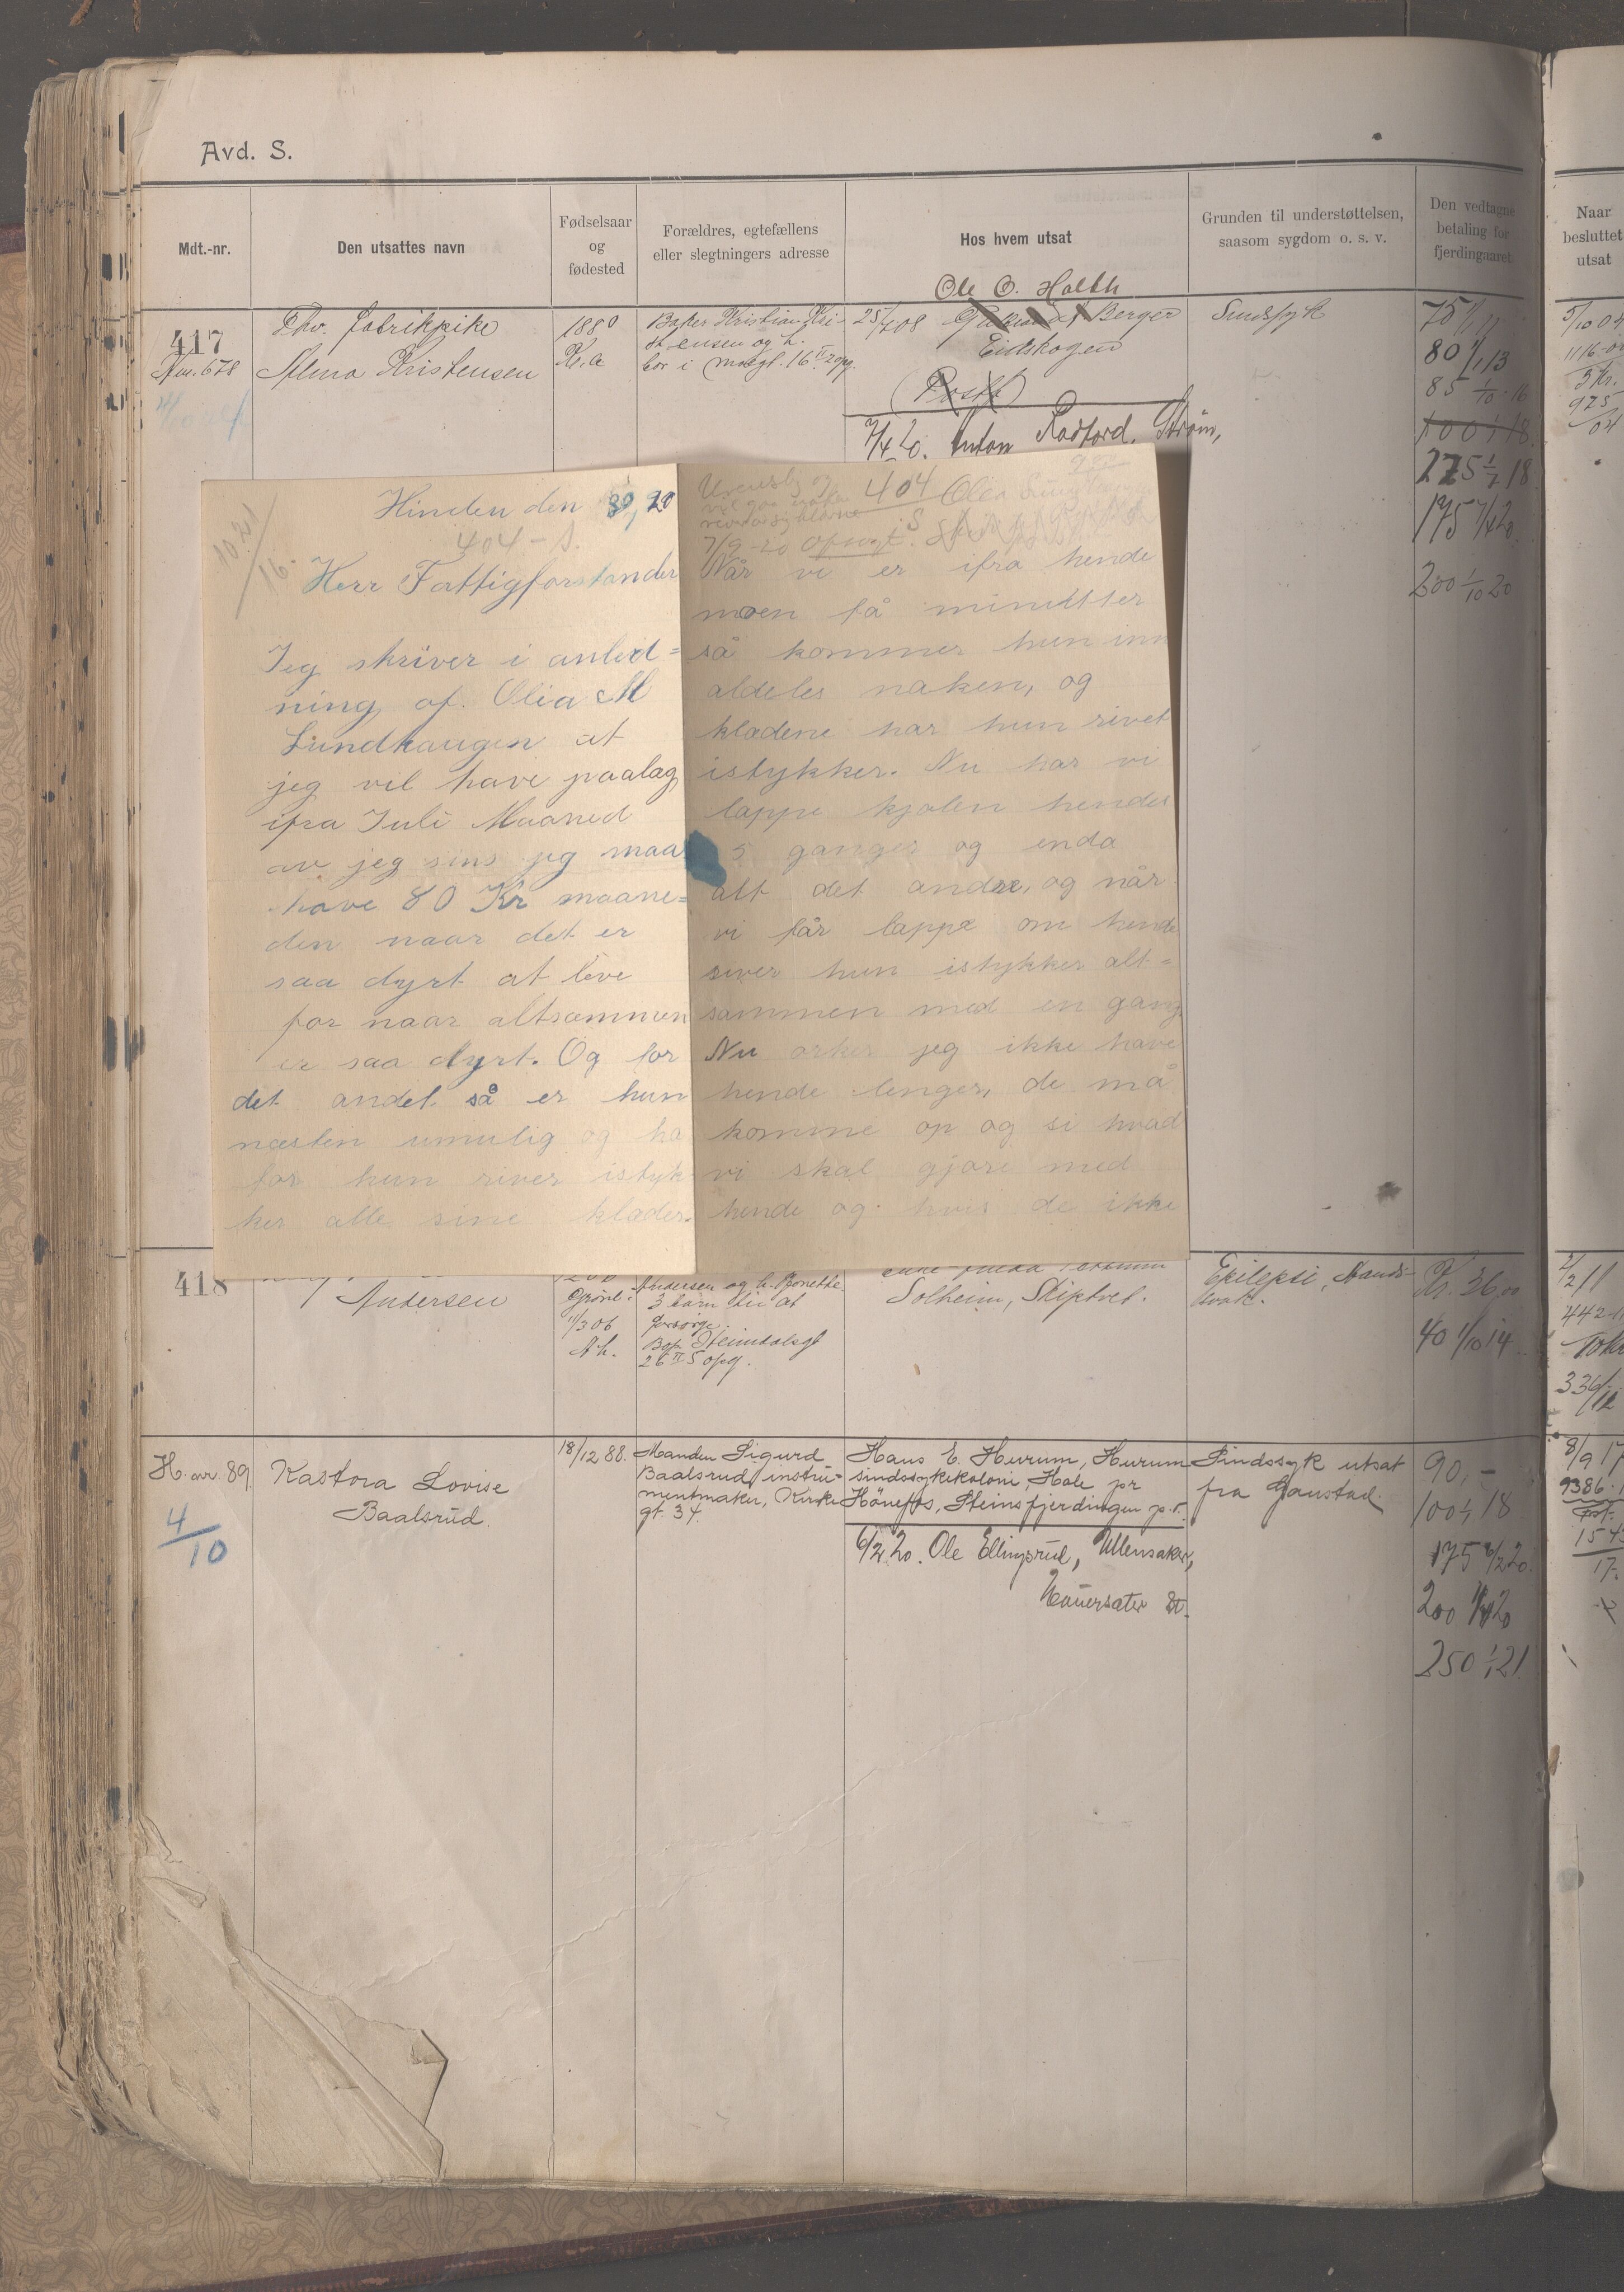 Avd. S.
Mdt.-nr.
Den utsattes navn
Fødselsaar
og
fødested
Forældres, egtefællens
eller slegtningers adresse
Hos hvem utsat
Grunden til understøttelsen,
saasom sygdom o. s. v.
Den vedtagne
betaling for
fjerdingaaret
Naar
besluttet
utsat
417
678
Fhv. fabrikpike
Alma Kristensen
1880
Kr.a
Baker Kristian Kri-
stensen og h.
bor i Maogt. 16 II opg.
Ole O. Holth
25/4 08 Berger
Eidskogen
7/4 20. Anton Strøm,
Sindssyk
75 1/1 11
80 1/1 13
85 1/10 16
100 1/1 18
225 1/7 18
175 7/4 20
200 1/10 20
5/10 04
3 Kr.
975
04
Hinden den 20
404 - S.
Herr Fattigforstander
Jeg skriver i anled=
ning af. Olia M
Lundhaugen at
jeg vil have paalæg
ifra Juli Maaned
av jeg sins jeg maa
have 80 Kr maane=
den naar det er
saa dyrt at leve
for naar altsammen
er saa dyrt. Og for
det andet så er hun
næsten umulig og ha
for hun river istyk-
ker alle sine klæder.
404 Olea
7/9-20 opsagt.
Når vi er ifra hende
moen få minutter
så kommer hun inn
aldeles naken, og
klædene har hun rivet
istykker. Nu har vi
lappe kjolen hendes
5 ganger og enda
alt det andre, og når
vi får lappe om hende
river hun istykker alt=
sammen med en gang
Nu orker jeg ikke have
hende lenger, de må
komme op og si hvad
vi skal gjøre med
hende og hvis de ikke
418
Andersen
Grönl.
11/3 06
Ah.
Andersen og h. Bonette
3 barn til at
forsørge.
Bop. Heimdalsgt
26 II 5 opg.
Solheim, Skiptvet.
Epilepsi, Aands-
svak.
Kr. 36,00
40 1/10 14
2/2 11
442-11
10 kr
336/12
H. nr. 89
4/10
Kastora Lovise
Baalsrud.
18/12 88.
Manden Sigurd
Baalsrud instru-
mentmaker, Kirke-
gt. 34.
Hans E. Hurum, Hurum
sindssykekoloni, Hole pr
Hönefos, Steinsfjerdingen p.å.
6/2 20. Ole Ellingsrud, Ullensaker,
Hauersæter St.
Sindssyk utsat
fra Gaustad.
90,-
100 1/1 18
175 6/2 20.
200 1/4 20
250 1/1 21
8/9 17
9386
17.